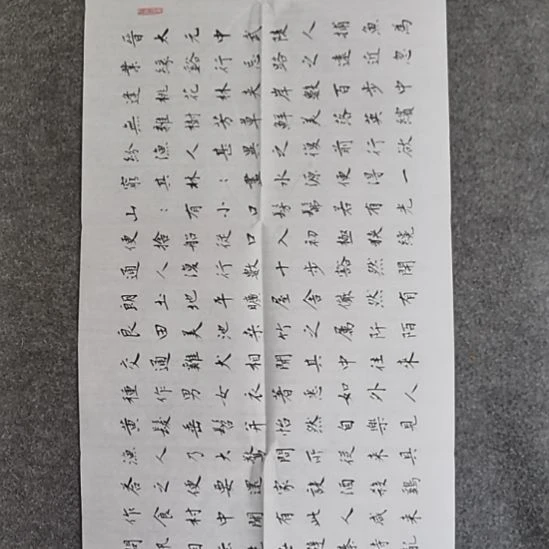 晉太元中武陵人捕魚為
業緣谿行忘路之遠近忽
逢桃花林夾岸數百步中
無雜樹芳草鮮美落英繽
紛漁人甚異之復前行欲
窮其林:盡水源便得一
山:有小口髣髴若有光
便捨船從口入初極狹纔
通人復行數十步豁然開
朗土地平曠屋舍儼然有
良田美池桑竹之屬阡陌
交通雞犬相聞其中往來
種作男女衣著悉如外人
黃髮垂髫并怡然自樂見
漁人乃大驚問所從來具
答之便要還家設酒殺雞
作食村中聞有此人咸來